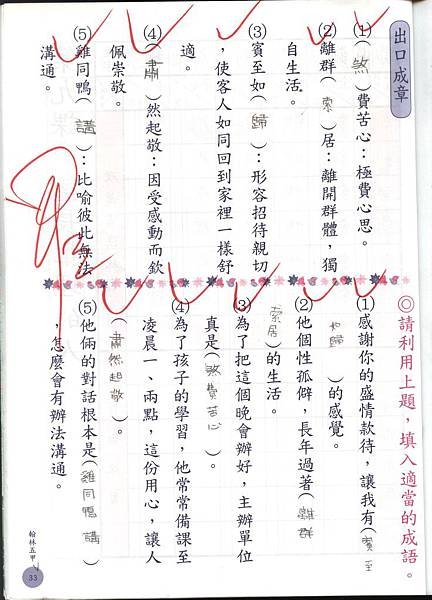 出口成章
(1)(煞)費苦心：極費心思。
(2)離群(索)居：離開群體，獨
自生活。
(3)賓至如(歸)：形容招待親切
，使客人如同回到家裡一樣舒
適。
(4)(肅)然起敬：因受感動而欽
佩崇敬。
(5)雞同鴨(講)：比喻彼此無法
溝通。
◎請利用上題，填入適當的成語。
(1)感謝你的盛情款待，讓我有(賓至
如歸)的感覺。
(2)他個性孤僻，長年過著(離群
索居)的生活。
(3)為了把這個晚會辦好，主辦單位
真是(煞費苦心)。
(4)為了孩子的學習，他常常備課至
凌晨一、兩點，這份用心，讓人
(肅然起敬)。
(5)他倆的對話根本是(雞同鴨講)
，怎麼會有辦法溝通。
翰林五甲
33